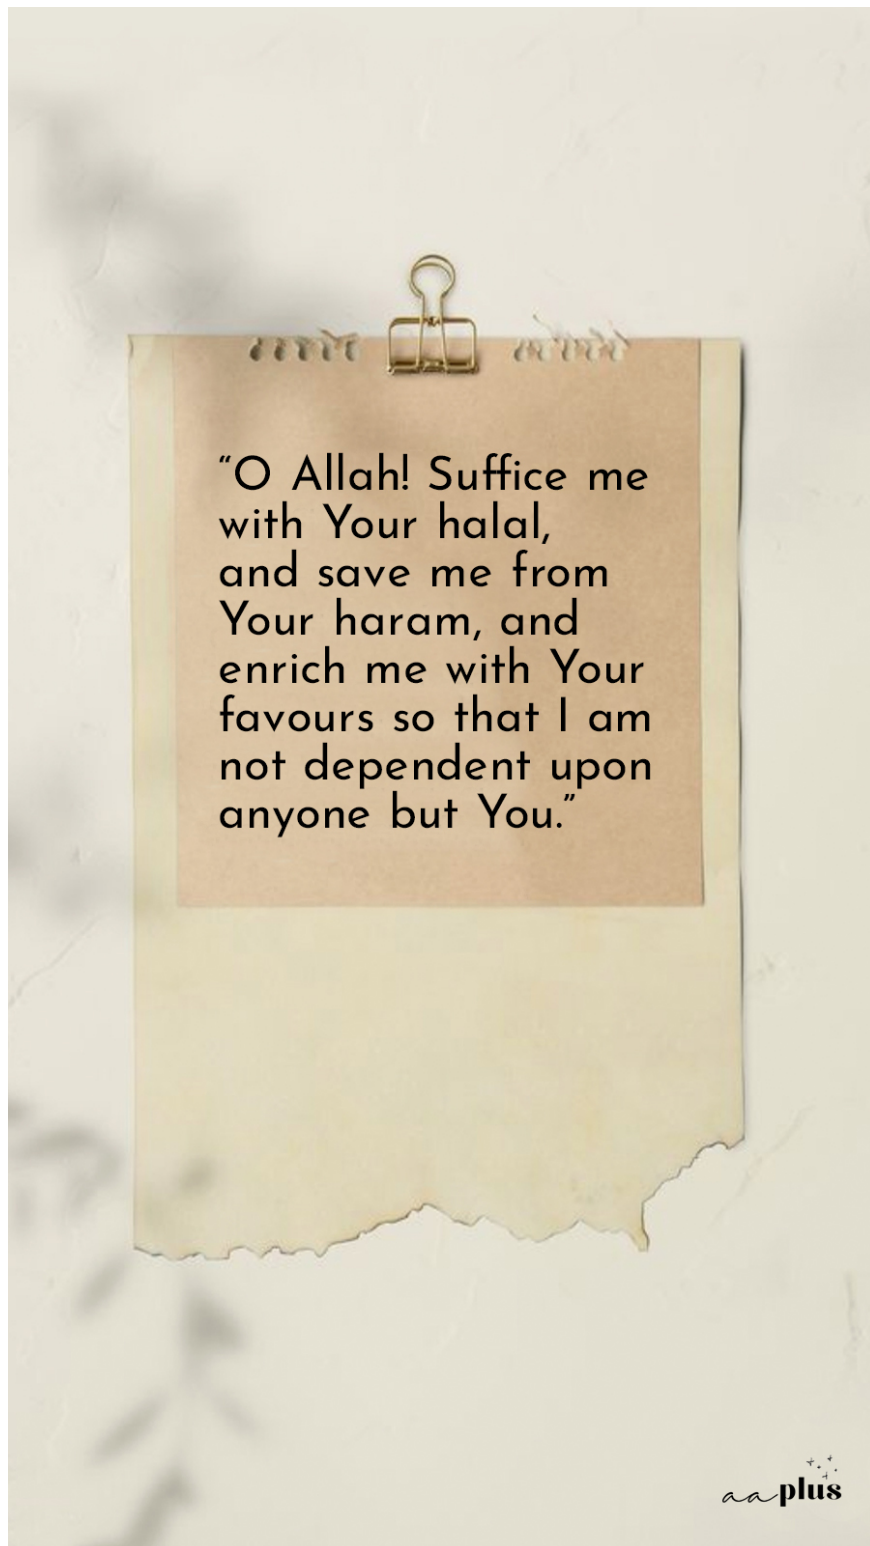 “O Allah! Suffice me
with Your halal,
and save me from
Your haram, and
enrich me with Your
favours so that I am
not dependent upon
anyone but You.”
aa plus